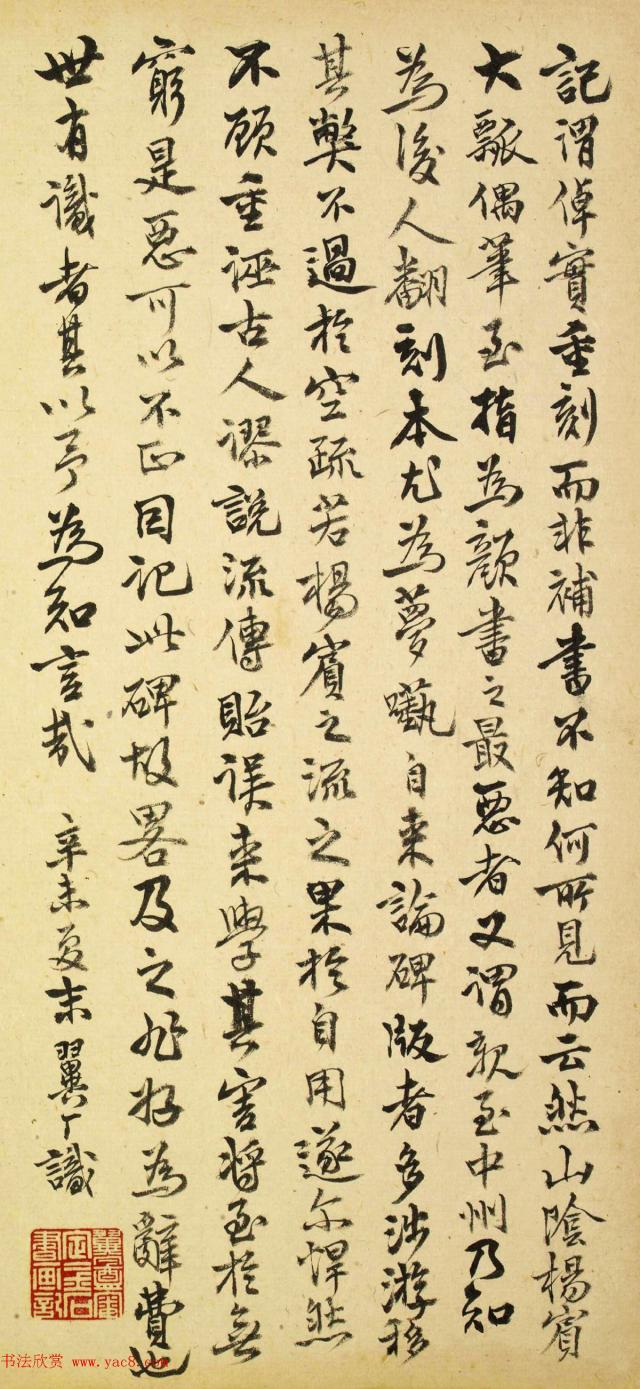 記謂倬實重刻而非補書不知何所見而云然山陰楊賓
大瓢偶筆至指為顏書之最惡者又謂親至中州乃知
為後人翻刻本尤為夢囈自来論碑版者多涉游移
其弊不過於空疏若楊賓之流之果於自用遂尔悍然
不顧重誣古人謬說流傳貽误来學其害将至於無
窮是惡可以不正因記此碑故畧及之非好為辭費也
世有識者其以予為知言哉
辛未夏末翼厂識
书法欣赏 www.yac8.com